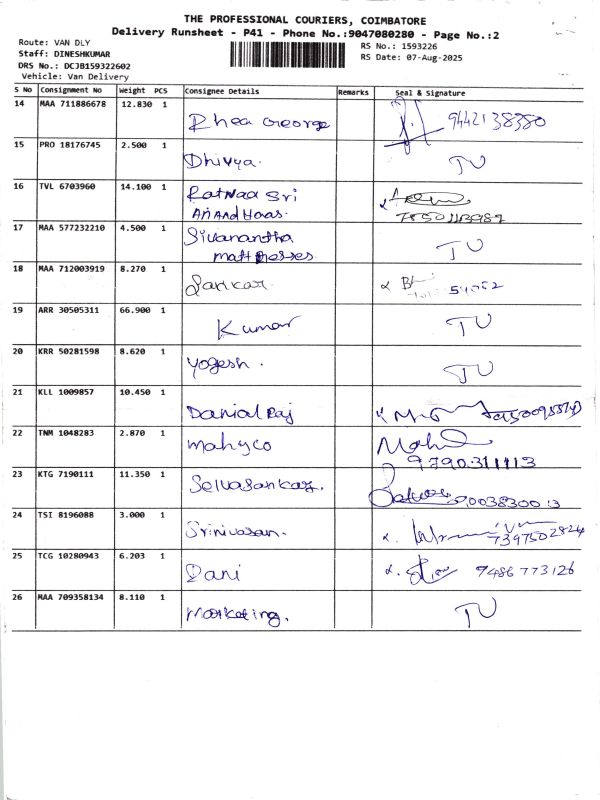 THE PROFESSIONAL COURIERS, COIMBATORE
Delivery Runsheet - P41 - Phone No.:9047080280 - Page No.:2
Route: VAN DLY
Staff: DINESHKUMAR
DRS No.: DCJB159322602
Vehicle: Van Delivery
RS No.: 1593226
RS Date: 07-Aug-2025
S No Consignment No Weight PCS Consignee Details Remarks Seal & Signature
14 MAA 711886678 12.830 1 Rhea George 9442138380
15 PRO 18176745 2.500 1 Dhivya. TU
16 TVL 6703960 14.100 1 Ratnaa Sri
Anand Haas.
17 MAA 577232210 4.500 1 Sivanantha TU
mattresses.
18 MAA 712003919 8.270 1 Sankar
19 ARR 30505311 66.900 1 Kumar TU
20 KRR 50281598 8.620 1 Yogesh. TU
21 KLL 1009857 10.450 1 Danial Raj
22 TNM 1048283 2.870 1 mahyco
9790311113
23 KTG 7190111 11.350 1 Selvasankar. 9003830013
24 TSI 8196088 3.000 1 Srinivasan.
7397502824
25 TCG 10280943 6.203 1 Dani 9486773126
26 MAA 709358134 8.110 1 Marketing. TU